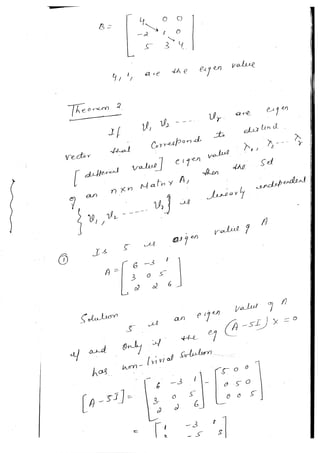 B = [ 4 0 0
-2 1 0
5 3 4 ]
4, 1, are the eigen value
Theorem 2
If v₁, v₂ ---- vᵣ are eigen
vector that Correspond to distind
[different value] eigen value λ₁, λ₂---- λᵣ
of an nxn Matrix A, then the Set
{v₁, v₂ ----- vᵣ} is linearly independent
① Is 5 is eigen value of A
A = [ 6 -3 1
3 0 5
2 2 6 ]
Solution
5 is an eigen value of A
if and only if the eq (A-5I) x = 0
has non-trivial Solution
[A-5I] = [ 6 -3 1 ] - [ 5 0 0 ]
3 0 5 0 5 0
2 2 6 0 0 5
= [ 1 -3 1 ]
3 -5 5